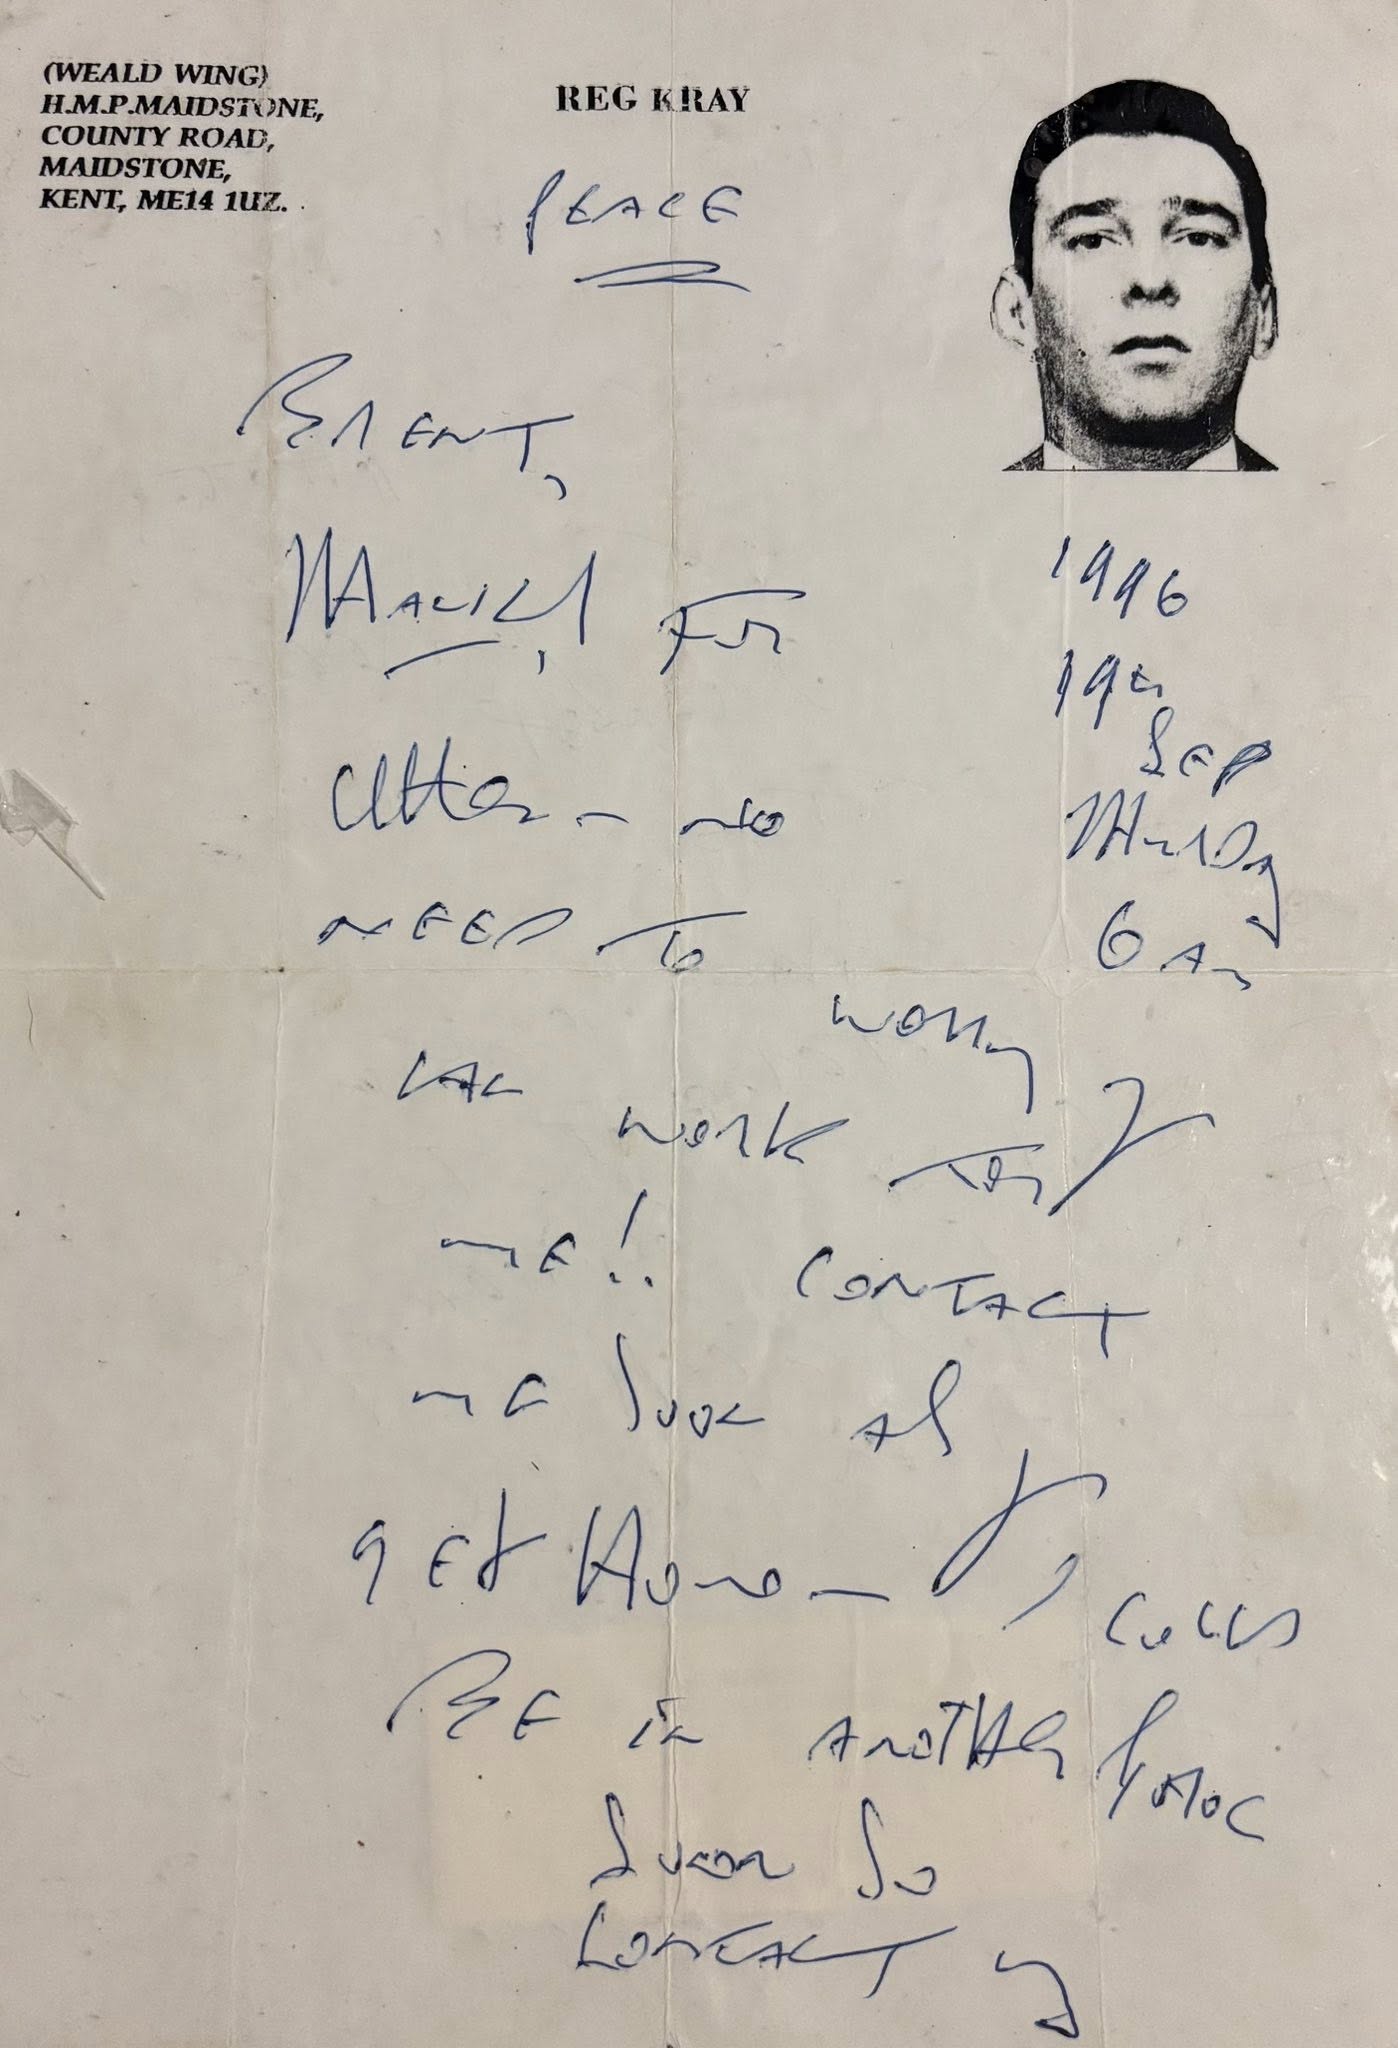 (WEALD WING)
H.M.P.MAIDSTONE,
COUNTY ROAD,
MAIDSTONE,
KENT, ME14 1UZ.
REG KRAY
PEACE
BRENT,
1996
for
19th
SEP
letter - no
Thursday
NEED TO
6 am
worry
work for
ME!! CONTACT
ME soon as
get Home - I could
BE in ANOTHER
soon so
CONTACT